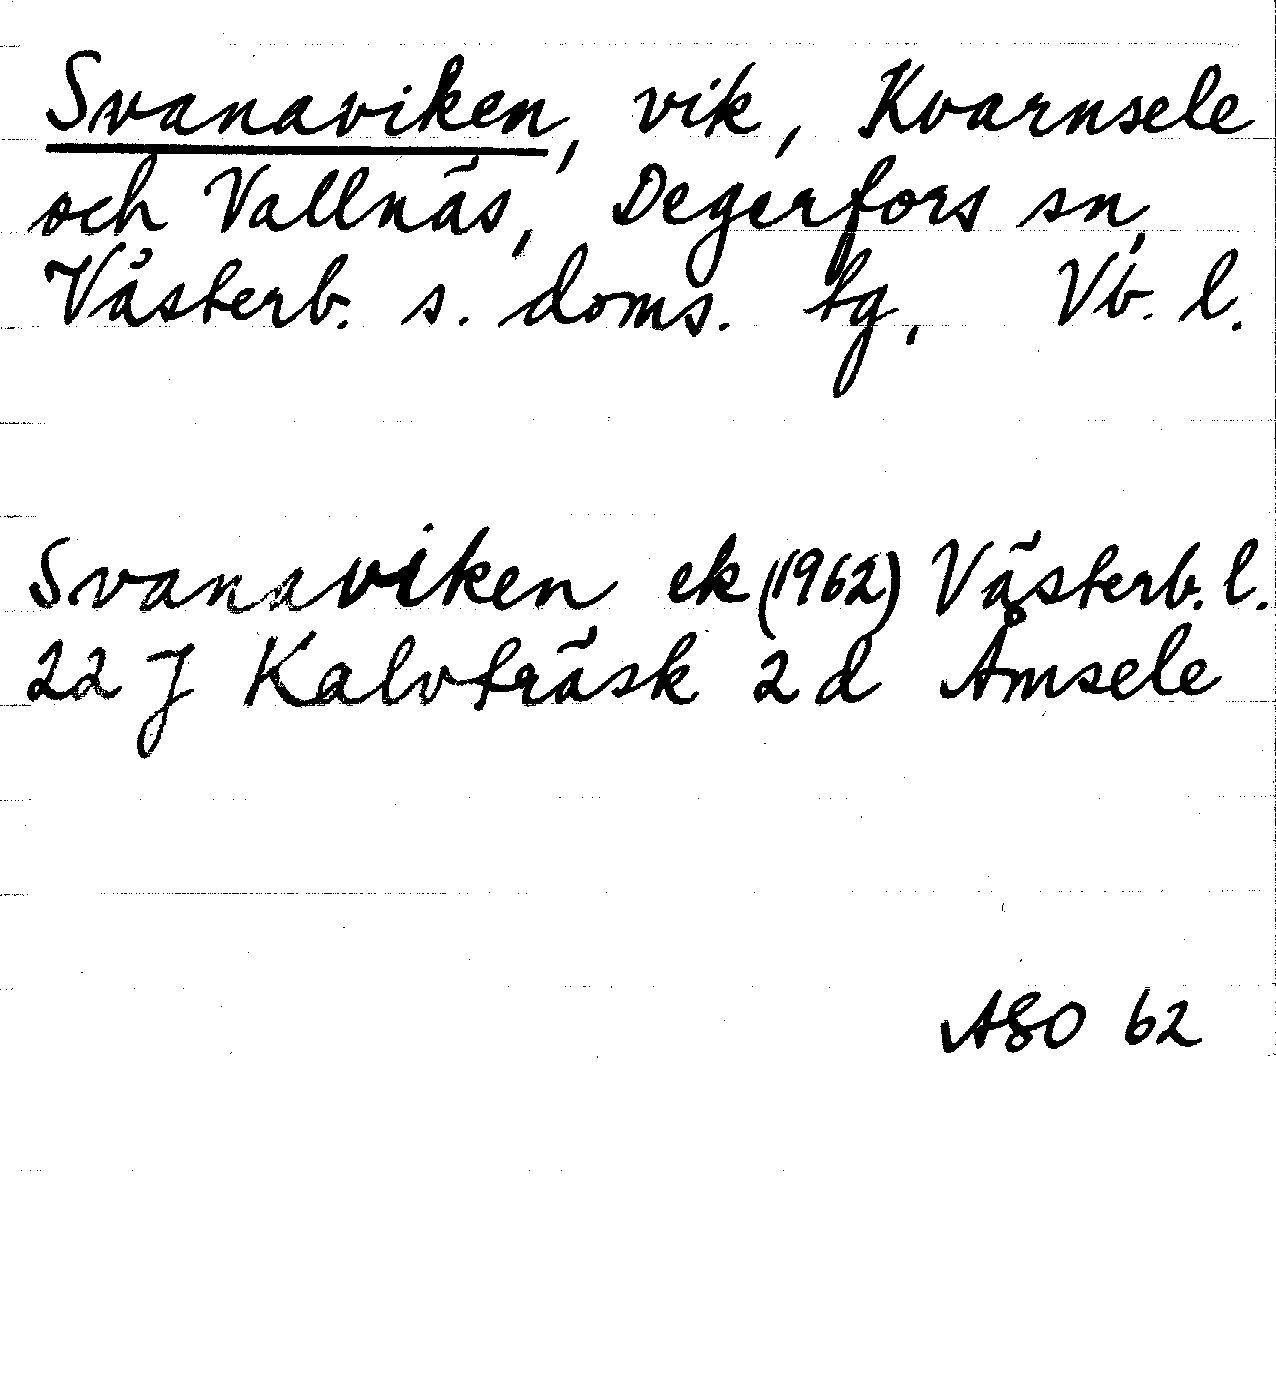 Svanaviken, vik, Kvarnsele
och Vallnäs, Degerfors sn,
Västerb. s. doms. tg, Vb. l.
Svanaviken ek (1962) Västerb. l.
22 J Kalvträsk 2 d Åmsele
ASO 62